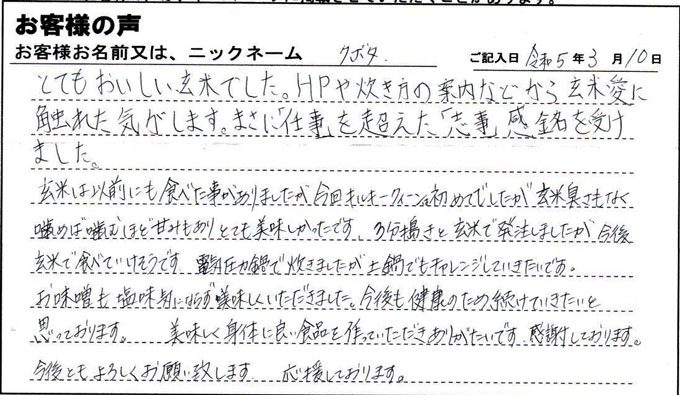 お客様の声
お客様お名前又は、ニックネーム クボタ ご記入日 令和5年3月10日
とてもおいしい玄米でした。HPや炊き方の案内などから玄米愛に
触れた気がします。まさに「仕事」を超えた「志事」感銘を受け
ました。
玄米は以前にも食べた事がありましたが今回ミルキークィーンは初めてでしたが玄米臭さもなく
噛めば噛むほど甘みもありとても美味しかったです。3分搗きと玄米で発注しましたが今後
玄米で食べていけそうです 電気圧力鍋で炊きましたが土鍋でもチャレンジしていきたいです。
お味噌も塩味にならず美味しくいただきました。今後も健康のため続けていきたいと
思っております。 美味しく身体に良い食品を作っていただきありがたいです 感謝しております。
今後ともよろしくお願い致します 応援しております。